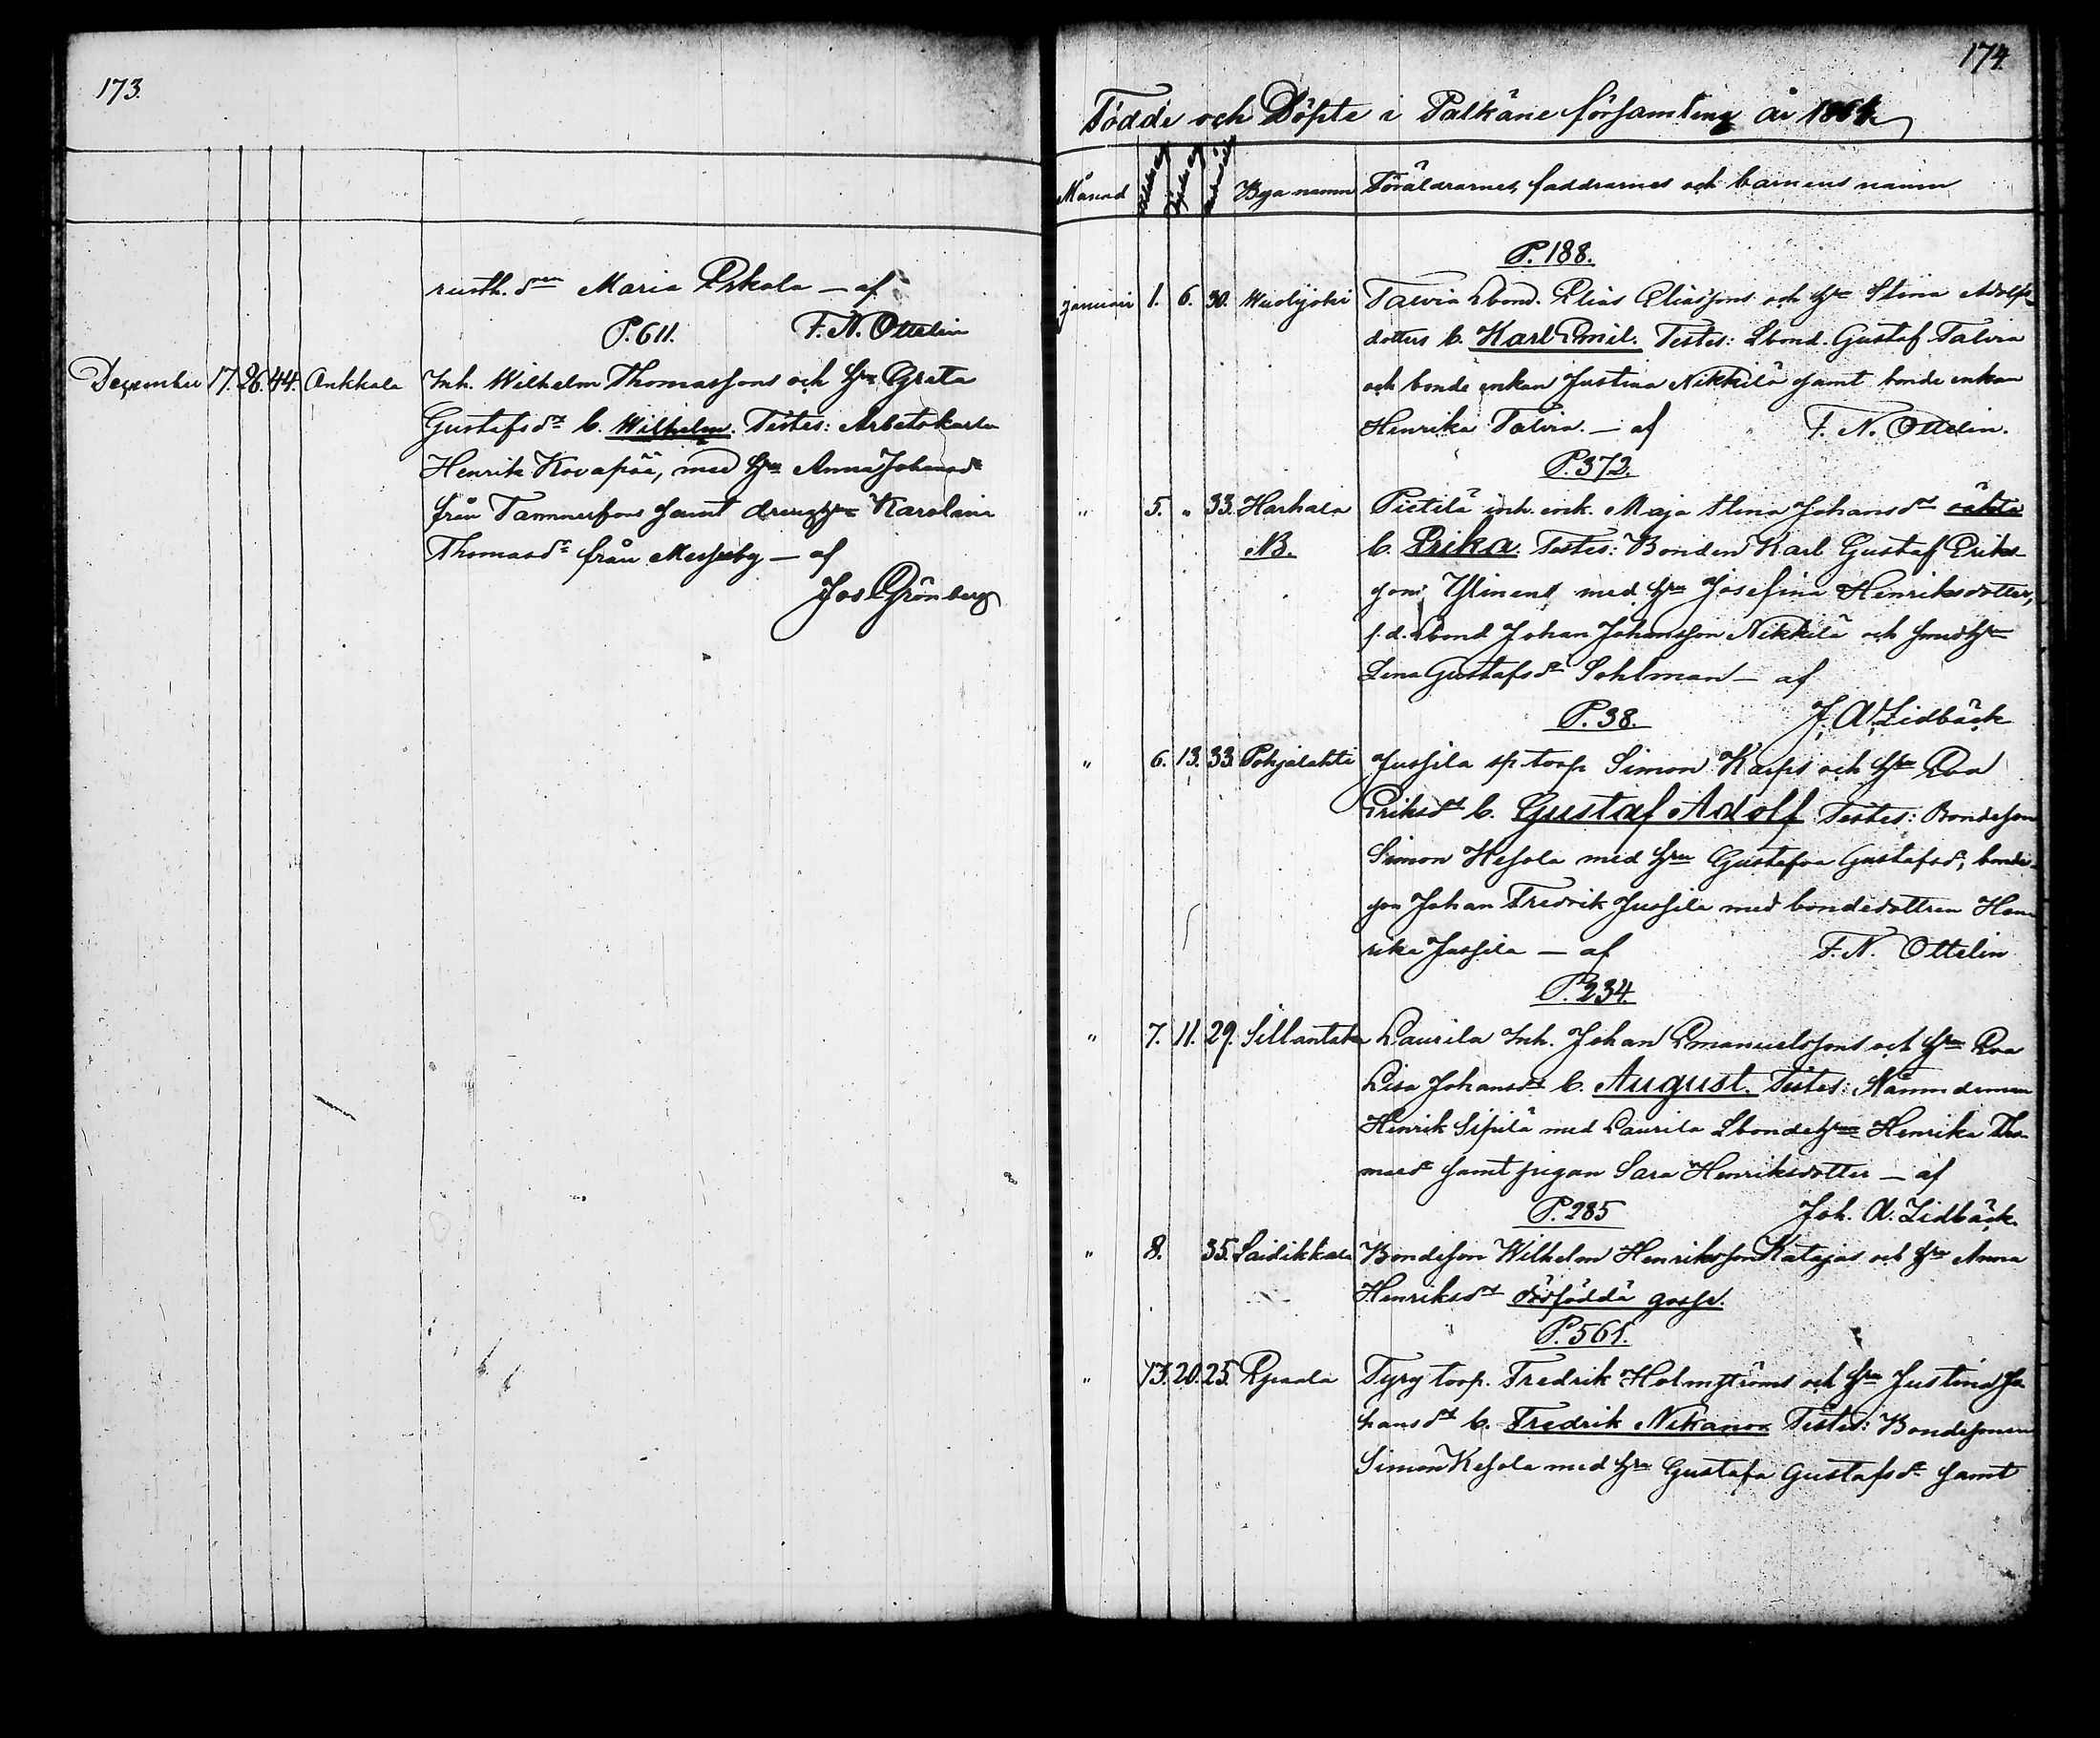 173.
rusth. dren Maria Eskola — af
P. 611. F. N. Ottelin
December 17. 26. 44. Ankkala Inh. Wilhelm Thomassons och hru Greta
Gustafsdr b. Wilhelm. Testes: Arbetskarln
Henrik Kovapää, med hru Anna Johansdr
från Tammerfors samt drenghru Karolina
Thomasdr från Messuby — af
Jos. Grönberg
174.
Födde och Döpte i Pälkäne församling år 1864
Månad Byanamn Föräldrarnes, faddrarnes och barnens namn
P. 188.
Januari 1. 6. 30. Wuolijoki Talvia Lbond. Elias Eliassons och hru Stina Adolfs-
dotters b. Karl Emil. Testes: Lbond. Gustaf Talvia
och bonde enkan Justina Nikkilä samt bonde enkan
Henrika Talvia. — af F. N. Ottelin.
P. 372.
" 5. " 33. Harhala Pietilä inh. enk. Maja Stina Johansdr oäkta
NB. b. Erika. Testes: Bonden Karl Gustaf Eriks-
son Ylinens med hru Josefina Henriksdotter,
f.d. Lbond Johan Johansson Nikkilä och smedhru
Lena Gustafsdr Sohlman — af
P. 38. J. A. Lidbäck
" 6. 13. 33. Pohjalahti Jussila sp. torp. Simon Karps och hru Eva
Eriksdr b. Gustaf Adolf Testes: Bondeson
Simon Kesola med hru Gustafva Gustafsdr, bonde-
son Johan Fredrik Jussila med bondedottren Hen
rika Jussila — af F. N. Ottelin
P. 234.
" 7. 11. 29. Sillantaka Laurila Inh. Johan Emanuelssons och hru Eva
Lisa Johansdr b. August. Testes: Nämndeman
Henrik Sipilä med Laurila Lbondehru Henrika Tho-
masdr samt pigan Sara Henriksdotter — af
P. 285 Joh. A. Lidbäck.
" 8. 35. Laidikkala Bondeson Wilhelm Henriksson Katajas och hru Anna
Henriksdr dödfödda gosse.
P. 561.
" 13. 20. 25. Epaala Tyry torp. Fredrik Holmströms och hru Justina Jo
hansdr b. Fredrik Nikanor Testes: Bondesonen
Simon Kesola med hru Gustafa Gustafsdr samt